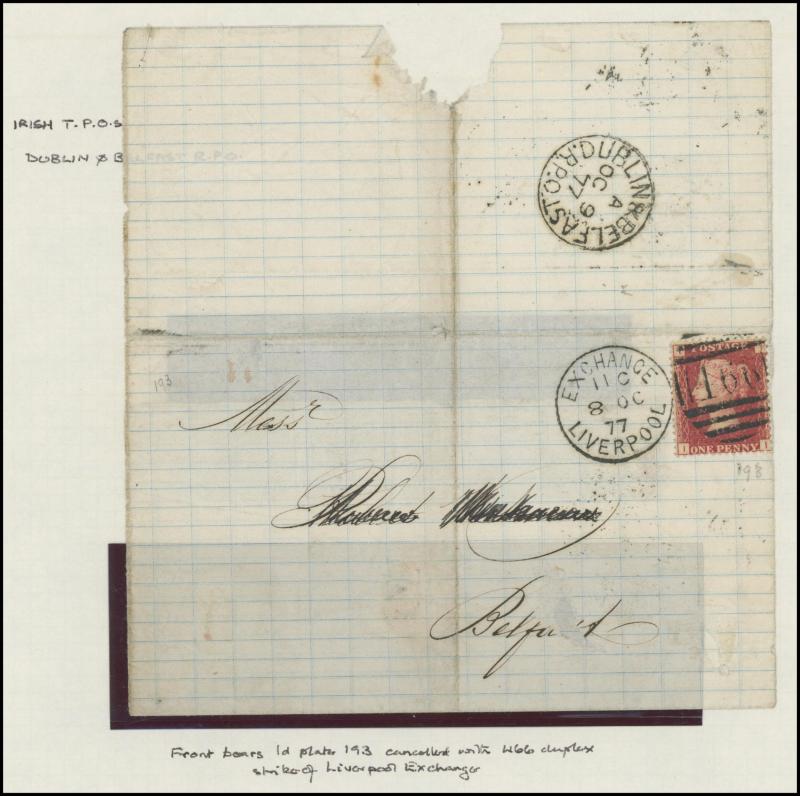 IRISH T.P.O.s
DUBLIN & BELFAST R.P.O.
DUBLIN & BELFAST R.P.O.
A
OC 9
77
193
EXCHANGE
11 C
8 OC
77
LIVERPOOL
POSTAGE
166
I ONE PENNY I
193
Messrs
Belfast
Front bears 1d plate 193 cancelled with 466 duplex
strike of Liverpool Exchange